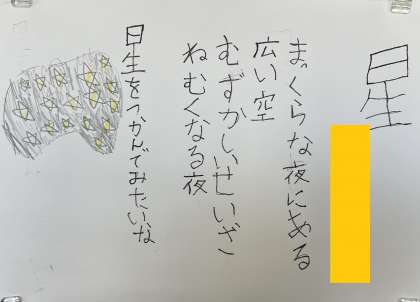 星
まっくらな夜にある
広い空
むずかしいせいざ
ねむくなる夜
星をつかんでみたいな